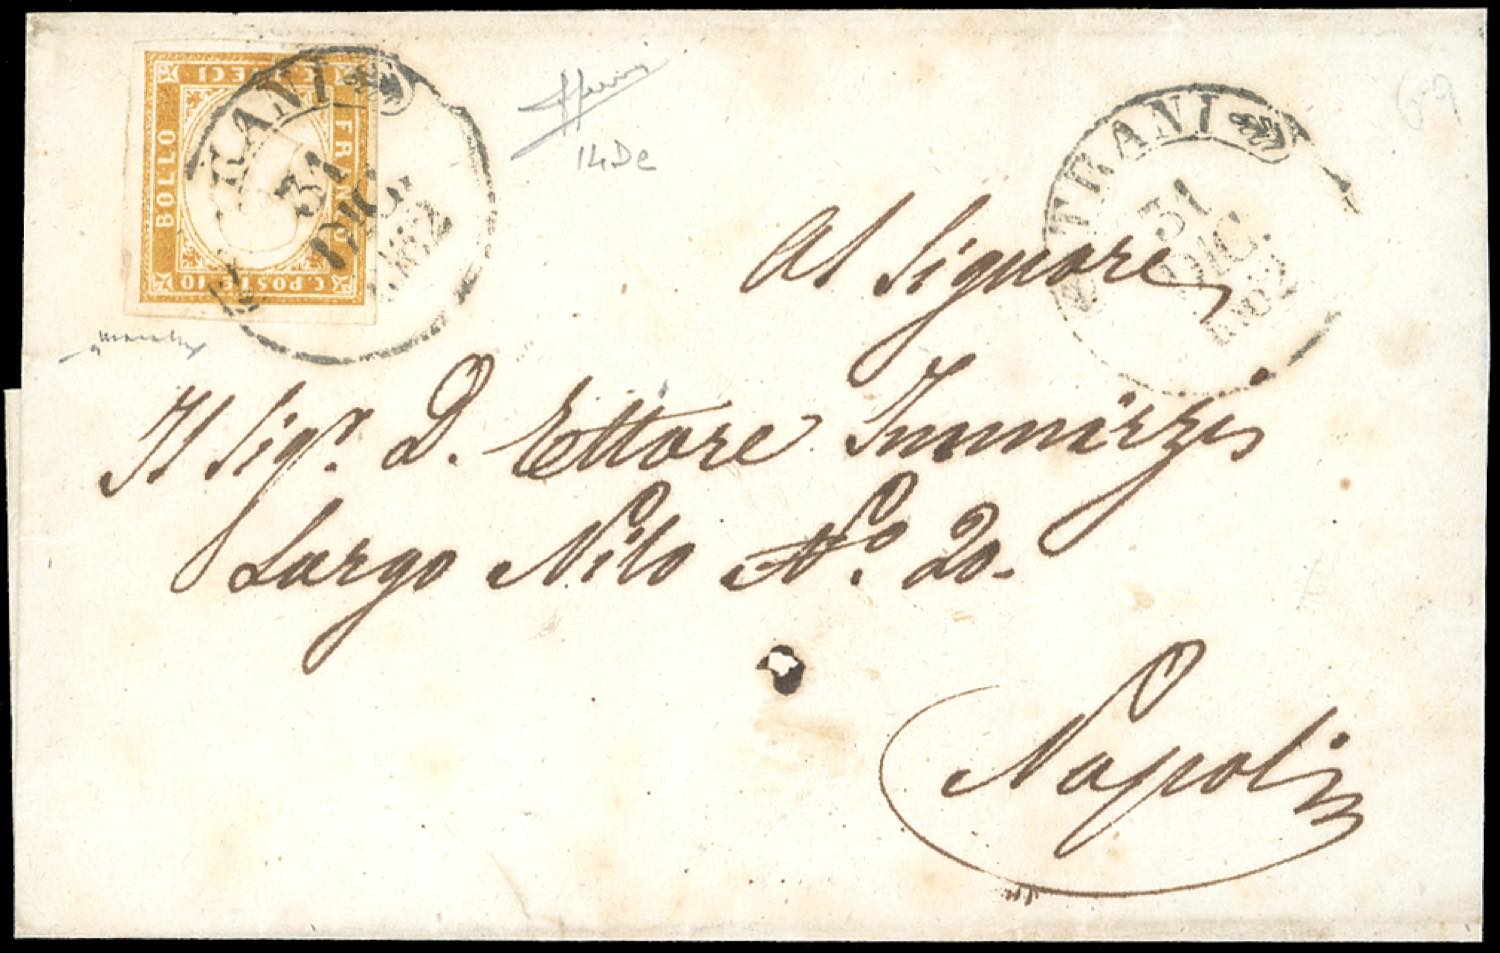 C. DIECI
BOLLO
FRANCO
C. POSTE 10
TRANI
31
DIC.
1862
14Dc
69
TRANI
31
DIC.
1862
Al Signore,
Il Sigr. D. Ettore
Largo Nilo No. 20.
Napoli